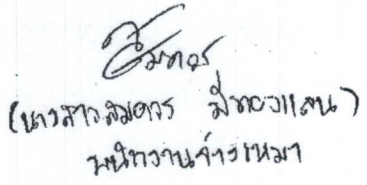 (นางสาวสมควร มีทองแสน)
พนักงานจ้างเหมา